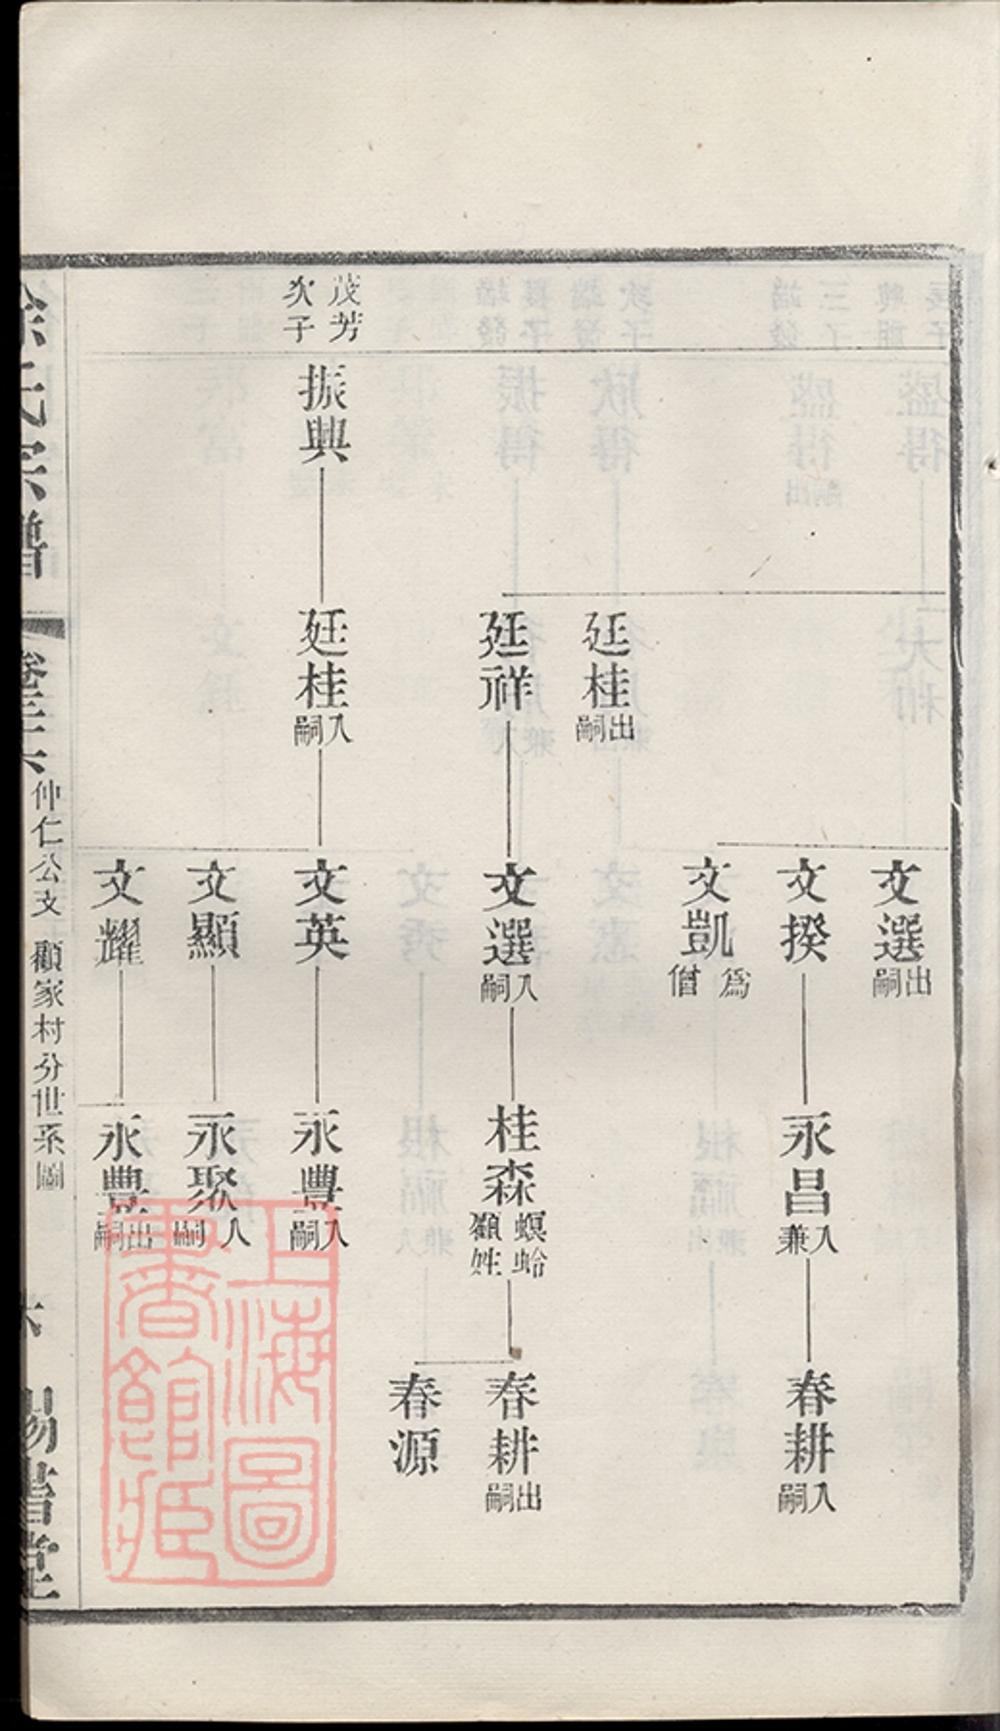 茂芳次子
振興
廷桂出嗣
廷祥
廷桂入嗣
文選出嗣
文揆
文凱為僧
文選入嗣
文英
文顯
文耀
永昌入兼
桂森螟蛉顧姓
永豐入嗣
永聚入嗣
永豐出嗣
春耕入嗣
春耕出嗣
春源
徐氏宗譜
卷三六
仲仁公支 顧家村分世系圖
六
上海圖書館藏